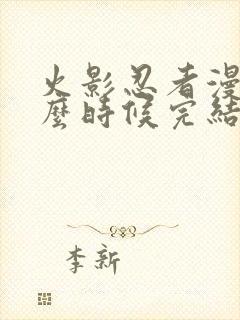 火影忍者漫
麼時候完結
李新